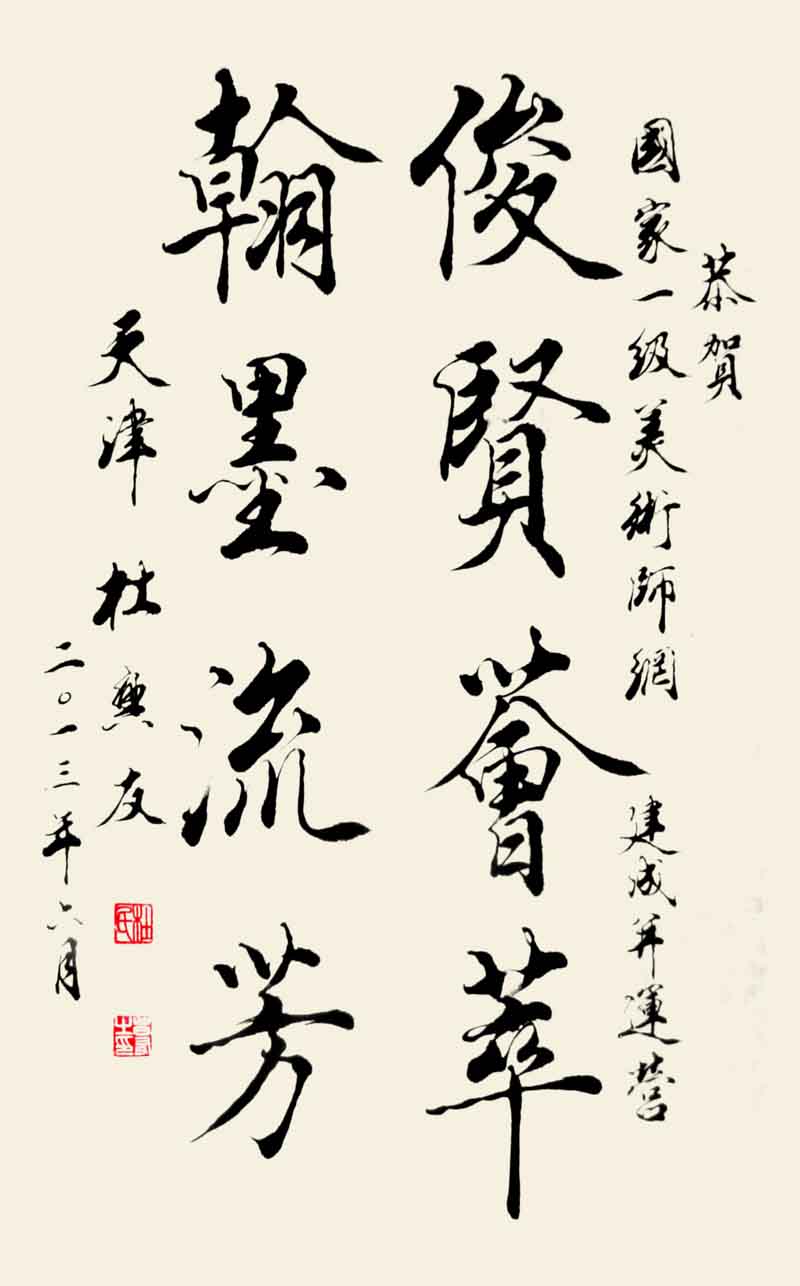 恭賀
國家一级美術師網 建成并運营
俊賢薈萃
翰墨流芳
天津 杜 友
二〇一三年六月